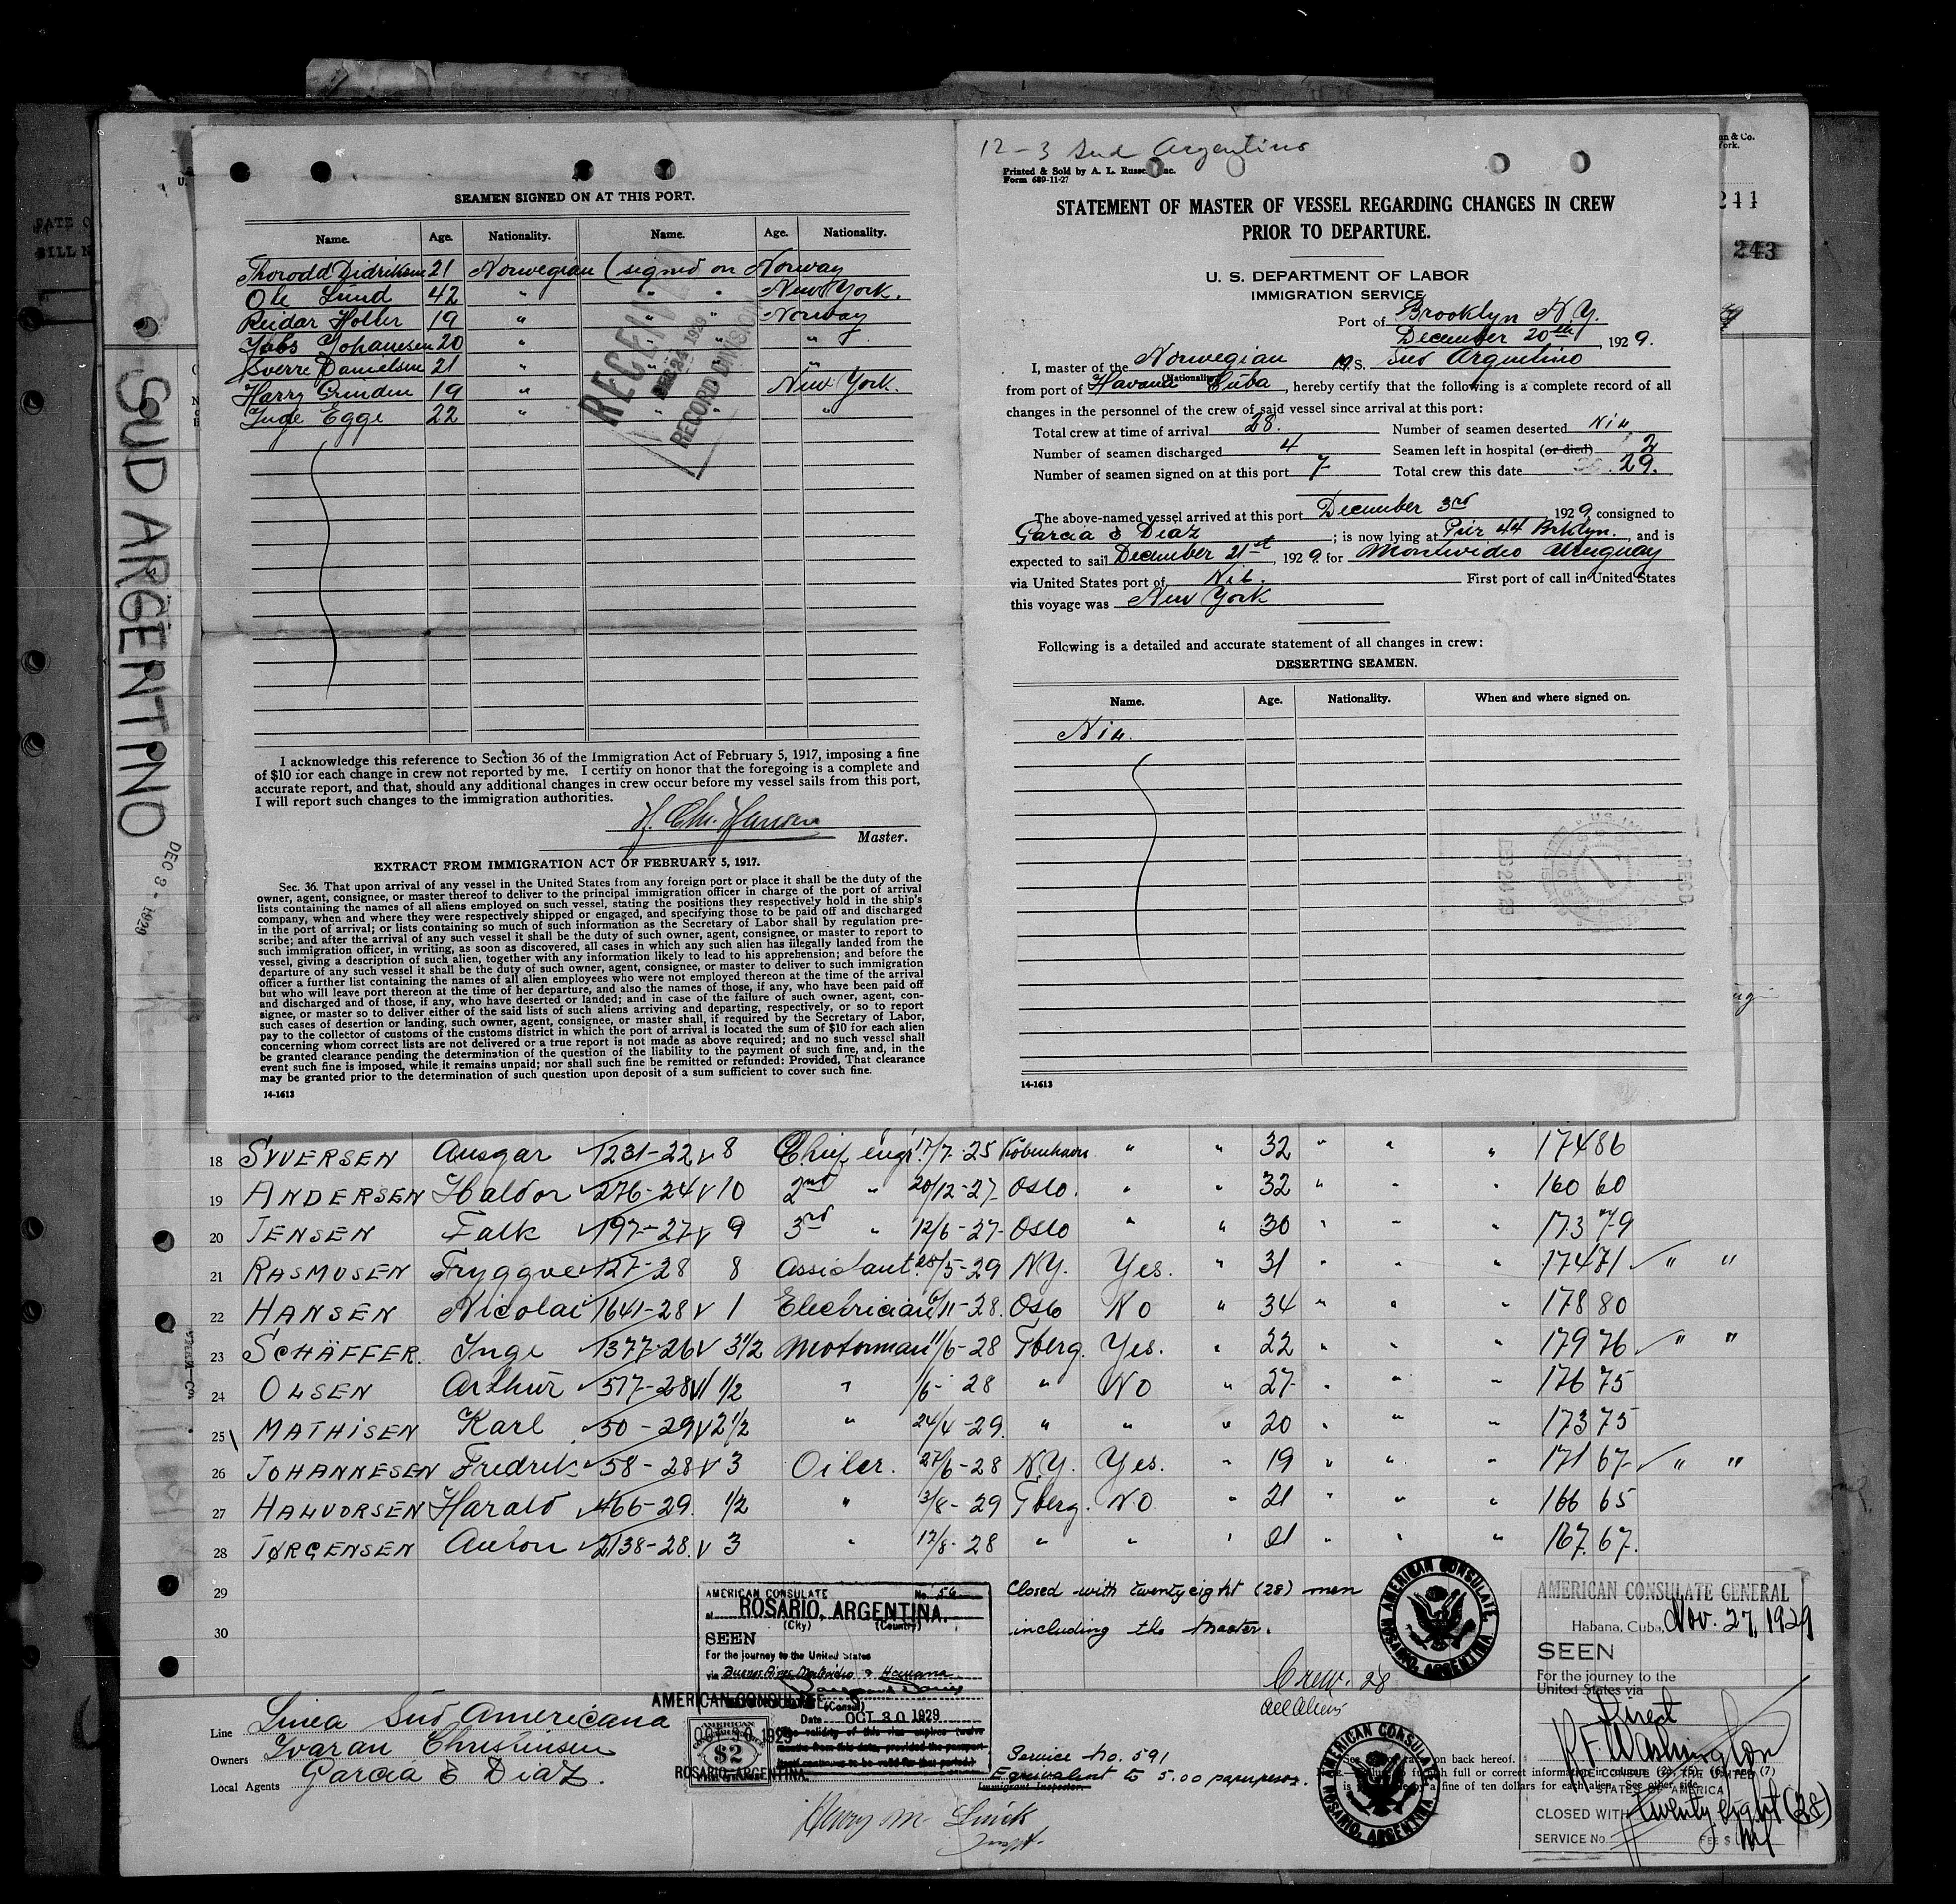 SUD ARGENTINO
DEC 3 - 1929
SEAMEN SIGNED ON AT THIS PORT.
Name. Age. Nationality. Name. Age. Nationality.
Thorodd Didriksen 21 Norwegian (signed on Norway
Ole Lund 42 " " " New York.
Reidar Holter 19 " " " Norway
Johansen 20 " " "
Sverre Danielsen 21 " "
Harry Grinden 19 " New York.
Inge Egge 22 " " " "
RECEIVED
DEC 24 1929
RECORD DIVISION
I acknowledge this reference to Section 36 of the Immigration Act of February 5, 1917, imposing a fine
of $10 for each change in crew not reported by me. I certify on honor that the foregoing is a complete and
accurate report, and that, should any additional changes in crew occur before my vessel sails from this port,
I will report such changes to the immigration authorities.
H. Chr. Hansen
Master.
EXTRACT FROM IMMIGRATION ACT OF FEBRUARY 5, 1917.
Sec. 36. That upon arrival of any vessel in the United States from any foreign port or place it shall be the duty of the
owner, agent, consignee, or master thereof to deliver to the principal immigration officer in charge of the port of arrival
lists containing the names of all aliens employed on such vessel, stating the positions they respectively hold in the ship's
company, when and where they were respectively shipped or engaged, and specifying those to be paid off and discharged
in the port of arrival; or lists containing so much of such information as the Secretary of Labor shall by regulation pre-
scribe; and after the arrival of any such vessel it shall be the duty of such owner, agent, consignee, or master to report to
such immigration officer, in writing, as soon as discovered, all cases in which any such alien has illegally landed from the
vessel, giving a description of such alien, together with any information likely to lead to his apprehension; and before the
departure of any such vessel it shall be the duty of such owner, agent, consignee, or master to deliver to such immigration
officer a further list containing the names of all alien employees who were not employed thereon at the time of the arrival
but who will leave port thereon at the time of her departure, and also the names of those, if any, who have been paid off
and discharged and of those, if any, who have deserted or landed; and in case of the failure of such owner, agent, con-
signee, or master so to deliver either of the said lists of such aliens arriving and departing, respectively, or so to report
such cases of desertion or landing, such owner, agent, consignee, or master shall, if required by the Secretary of Labor,
pay to the collector of customs of the customs district in which the port of arrival is located the sum of $10 for each alien
concerning whom correct lists are not delivered or a true report is not made as above required; and no such vessel shall
be granted clearance pending the determination of the question of the liability to the payment of such fine, and, in the
event such fine is imposed, while it remains unpaid; nor shall such fine be remitted or refunded: Provided, That clearance
may be granted prior to the determination of such question upon deposit of a sum sufficient to cover such fine.
14-1613
12-3 Sud Argentino
Printed & Sold by A. L. Russell, Inc.
Form 689-11-27
STATEMENT OF MASTER OF VESSEL REGARDING CHANGES IN CREW
PRIOR TO DEPARTURE.
U. S. DEPARTMENT OF LABOR
IMMIGRATION SERVICE
Port of Brooklyn N.Y.
December 20th, 1929.
I, master of the Norwegian M.S. Sud Argentino
(Nationality)
from port of Havana Cuba, hereby certify that the following is a complete record of all
changes in the personnel of the crew of said vessel since arrival at this port:
Total crew at time of arrival 28. Number of seamen deserted Nil
Number of seamen discharged 4 Seamen left in hospital (or died) 2
Number of seamen signed on at this port 7 Total crew this date 29.
The above-named vessel arrived at this port December 3rd 1929, consigned to
Garcia & Diaz; is now lying at Pier 44 Brklyn., and is
expected to sail December 21st, 1929 for Montevideo Uruguay
via United States port of Nil. First port of call in United States
this voyage was New York
Following is a detailed and accurate statement of all changes in crew:
DESERTING SEAMEN.
Name. Age. Nationality. When and where signed on.
Nil.
REC'D
DEC 24 29
14-1613
241
243
18 SYVERSEN Ansgar 1231-22 v 8 Chief eng. 17/7-25 Kobenhavn " " 32 " " " 174 86
19 ANDERSEN Haldor 276-24 v 10 2nd " 20/12-27 Oslo. " " 32 " " " 160 60
20 JENSEN Falk 197-27 v 9 3rd " 12/6-27 Oslo " " 30 " " " 173 79
21 RASMUSEN Tryggve 127-28 8 Assistant 28/5-29 N.Y. Yes. " 31 " " " 174 71 ✓ " "
22 HANSEN Nicolai 1641-28 v 1 Electrician 6/11-28. Oslo No " 34 " " " 178 80
23 SCHÄFFER. Inge 1377-26 v 3½ Motorman 11/6-28 Tberg. Yes. " 22 " " " 179 76 ✓ " "
24 OLSEN Arthur 517-28 v 1½ " 1/6-28 " No " 27 " " " 176 75
25 MATHISEN Karl 50-29 v 2½ " 24/4-29. " " " 20 " " " 173 75
26 JOHANNESEN Fredrik 58-28 v 3 Oiler. 27/6-28 N.Y. Yes. " 19 " " " 171 67 ✓ " "
27 HALVORSEN Harald 466-29. ½ " 3/8-29 Tberg. No. " 21 " " " 166 65
28 JØRGENSEN Anton 2138-28. v 3 " 12/8-28 " " " 21 " " " 167. 67.
29
30
AMERICAN CONSULATE No. 56
at ROSARIO, ARGENTINA.
(City) (Country)
SEEN
For the journey to the United States
via Buenos Aires, Montevideo & Havana
(Consul)
Date OCT 30 1929
AMERICAN CONSULATE
OCT 30 1929
$2
ROSARIO, ARGENTINA.
Closed with twenty eight (28) men
including the master.
Crew. 28
all aliens
AMERICAN CONSULATE, ROSARIO, ARGENTINA
Service No. 591
Equivalent to 5.00 paper pesos.
Immigrant Inspector.
AMERICAN CONSULATE, ROSARIO, ARGENTINA
AMERICAN CONSULATE GENERAL
Habana, Cuba, Nov. 27, 1929
SEEN
For the journey to the
United States via
Direct
VICE CONSUL OF THE UNITED
STATES OF AMERICA
CLOSED WITH twenty eight (28)
SERVICE No. FEE $
Line Linea Sud Americana
Owners Ivaran Christensen
Local Agents Garcia & Diaz.
Henry M.
Insp.
on back hereof.
a fine of ten dollars for each alien. See other side.